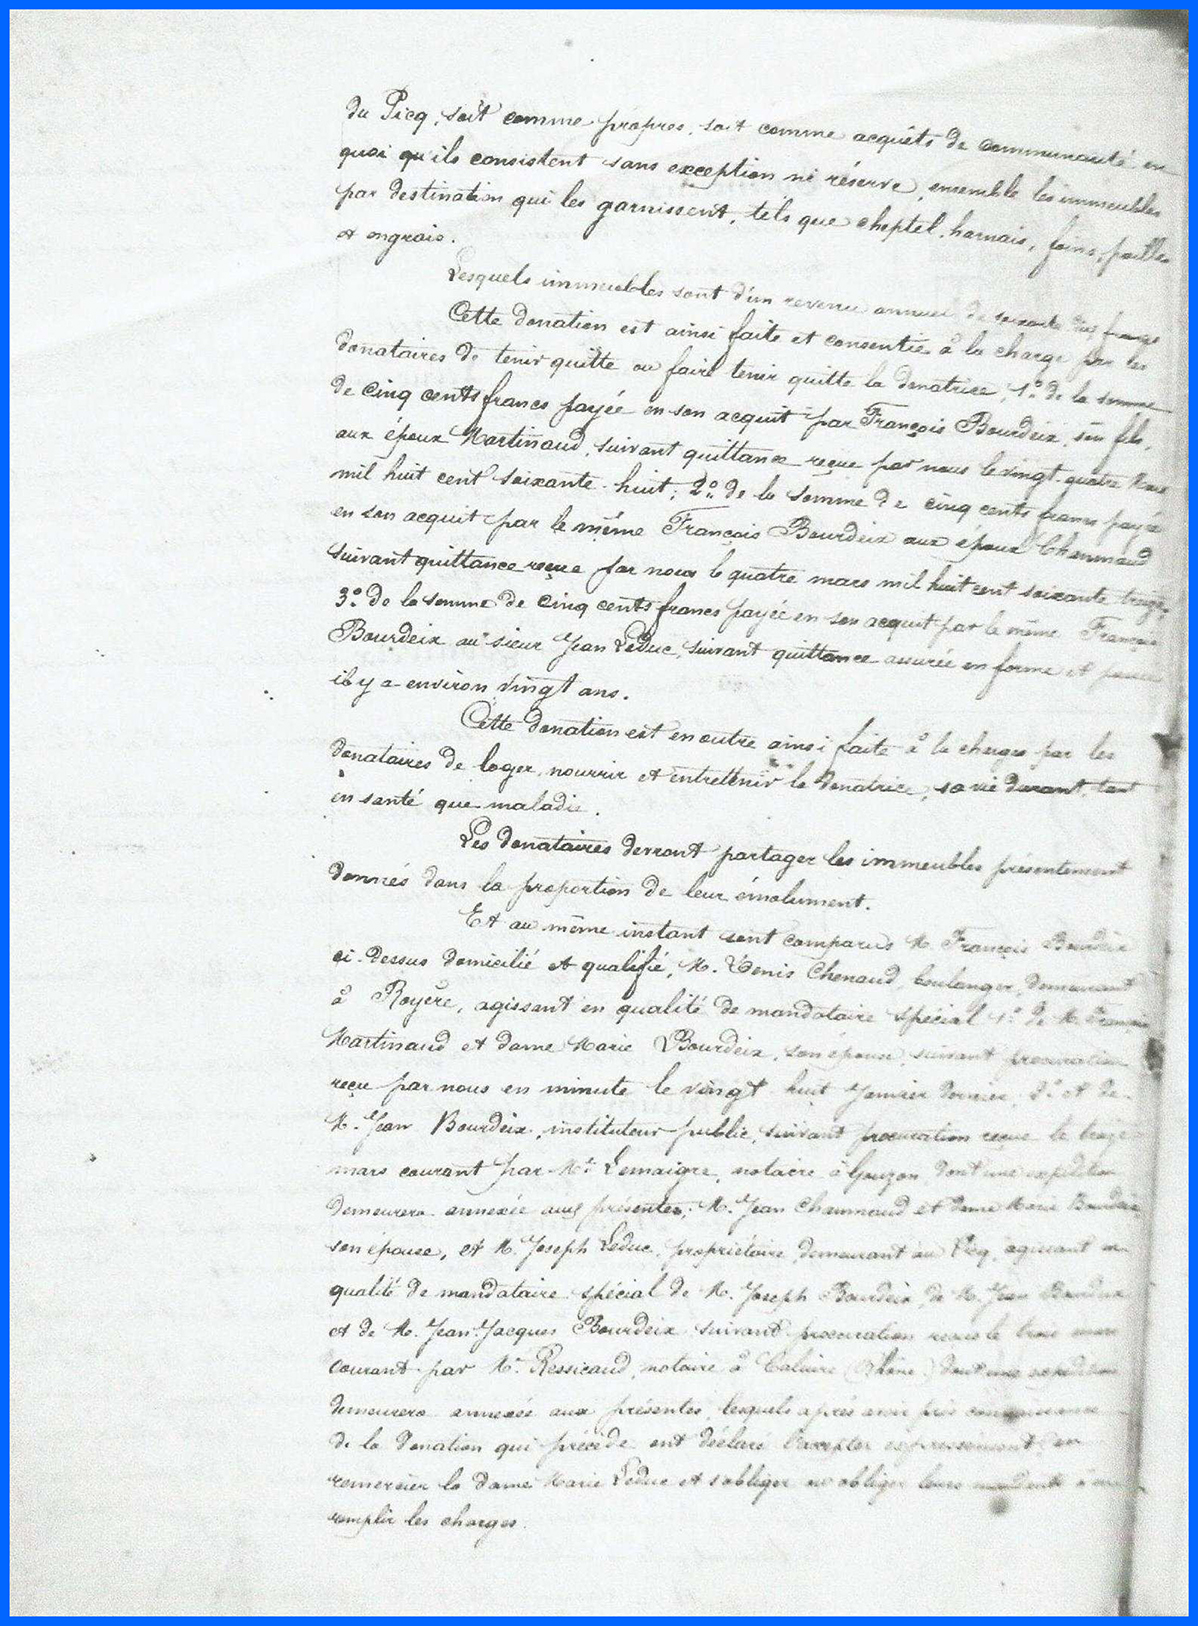 du Picq, soit comme propres, soit comme acquêts de communauté en
quoi qu'ils consistent sans exception ni réserve, ensemble les immeubles
par destination qui les garnissent, tels que cheptel, harnais, foins, pailles
et engrais.
Lesquels immeubles sont d'un revenu annuel de soixante dix francs
Cette donation est ainsi faite et consentie à la charge par les
donataires de tenir quitte ou faire tenir quitte la donatrice, 1º de la somme
de cinq cents francs payée en son acquit par François Bourdeix, son fils,
aux époux Martinaud, suivant quittance reçue par nous le vingt-quatre Mars
mil huit cent soixante-huit; 2º de la somme de cinq cents francs payée
en son acquit par le même François Bourdeix aux époux Chammaud
suivant quittance reçue par nous le quatre mars mil huit cent soixante treize,
3º de la somme de cinq cents francs payée en son acquit par le même François
Bourdeix au sieur Jean Leduc, suivant quittance assurée en forme et
il y a environ vingt ans.
Cette donation est en outre ainsi faite à la charge par les
donataires de loger, nourrir et entretenir la donatrice, sa vie durant tant
en santé que maladie.
Les donataires devront partager les immeubles présentement
donnés dans la proportion de leur émolument.
Et au même instant sont comparus M. François Bourdeix
ci-dessus domicilié et qualifié, M. Denis Chenaud, boulanger, demeurant
à Royère, agissant en qualité de mandataire spécial 1º de M. François
Martinaud et dame Marie Bourdeix, son épouse, suivant procuration
reçu par nous en minute le vingt-huit Janvier dernier, 2º et de
M. Jean Bourdeix, instituteur public, suivant procuration reçue le treize
mars courant par Me Lemaigre, notaire à Gouzon dont une expédition
demeurera annexée aux présentes; M. Jean Chammaud et dame Marie Bourdeix,
son épouse, et M. Joseph Leduc, propriétaire, demeurant au Picq, agissant en
qualité de mandataire spécial de M. Joseph Bourdeix, de M. Jean Bourdeix
et de M. Jean-Jacques Bourdeix suivant procuration reçue le trois mars
courant par Me Ressicaud, notaire à Caluire (Rhône) dont une expédition
demeurera annexée aux présentes, lesquels après avoir pris connaissance
de la donation qui précède ont déclaré l'accepter expressément, en
remercier la dame Marie Leduc et s'obliger ou obliger leurs mandants à en
remplir les charges.